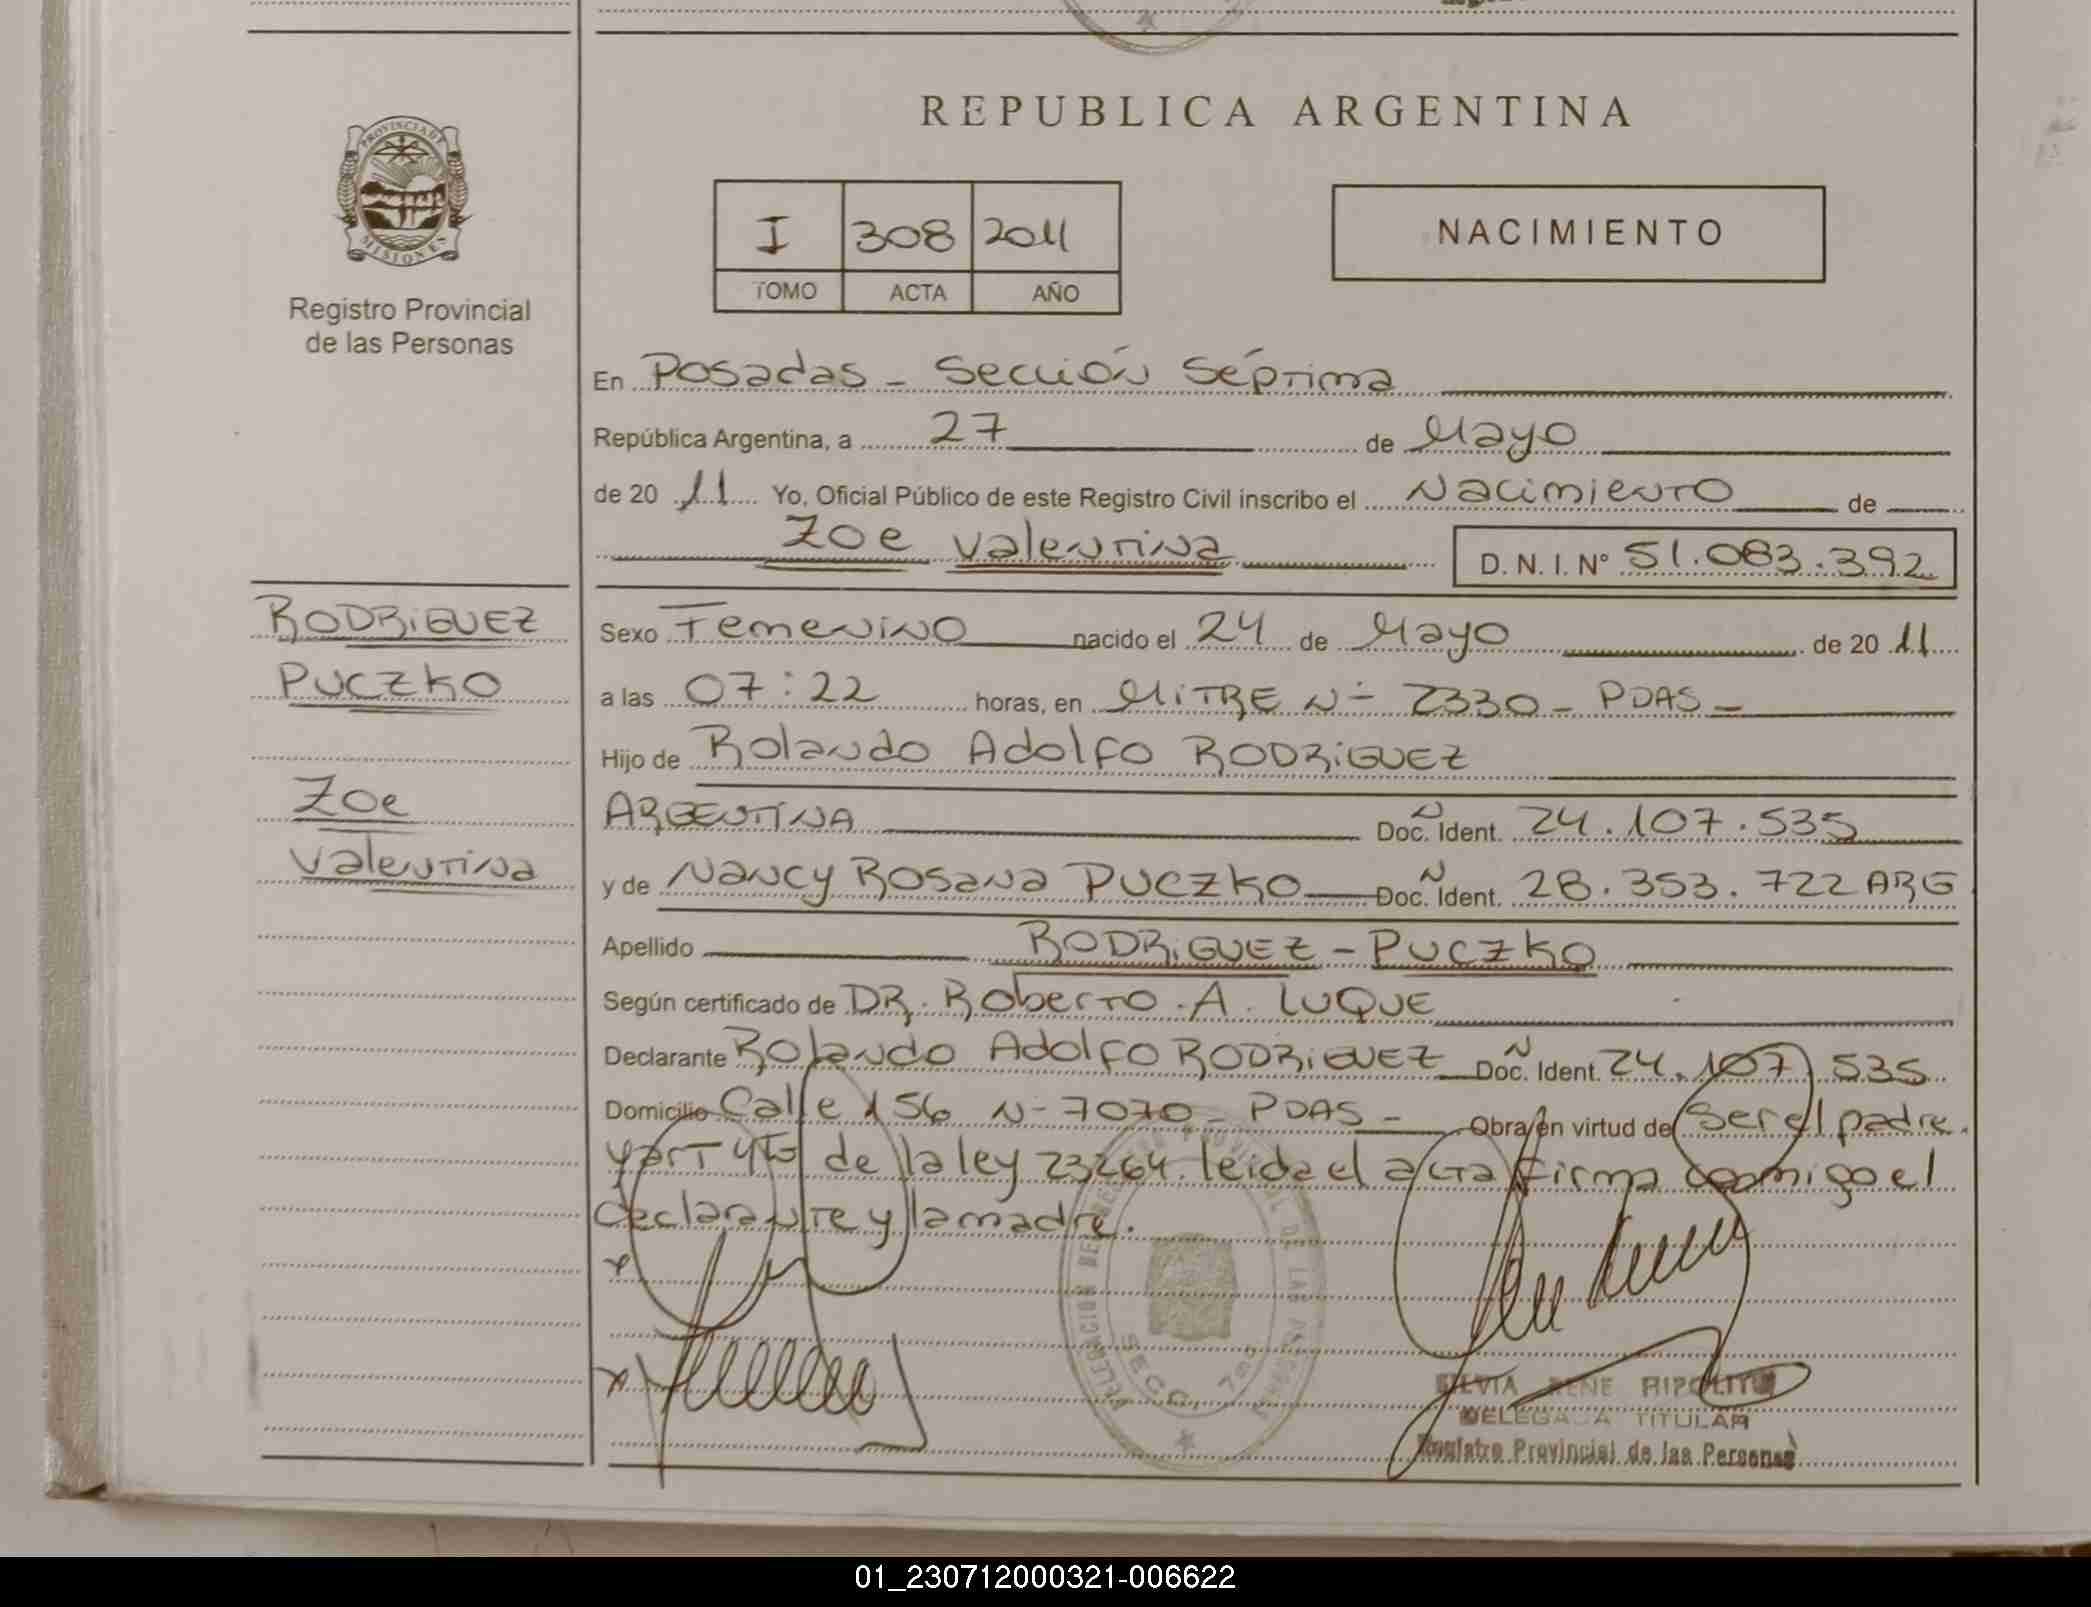 REPUBLICA ARGENTINA
PROVINCIA DE
MISIONES
Registro Provincial
de las Personas
I 308 2011
TOMO ACTA AÑO
NACIMIENTO
En Posadas - Sección Séptima
República Argentina, a 27 de Mayo
de 20 11 Yo, Oficial Público de este Registro Civil inscribo el Nacimiento de
Zoe Valentina D. N. I. N° 51.083.392
RODRIGUEZ
PUCZKO
Zoe
Valentina
Sexo Femenino nacido el 24 de Mayo de 20 11
a las 07:22 horas, en MITRE N- 2330 - PDAS -
Hijo de Rolando Adolfo RODRIGUEZ
ARGENTINA Doc. Ident. 24.107.535
y de Nancy Rosana PUCZKO Doc. Ident. 28.353.722 ARG
Apellido RODRIGUEZ - PUCZKO
Según certificado de DR. Roberto. A. LUQUE
Declarante Rolando Adolfo RODRIGUEZ Doc. Ident. 24.107.535
Domicilio Calle 156 N- 7070 - PDAS - Obra en virtud de Ser el padre.
y art de la ley 23264. leida el acta firma conmigo el
declarante y la madre.
DELEGACION DEL REGISTRO PROVINCIAL DE LAS PERSONAS
SECC. 7ma
SILVIA RENE RIPOLITO
DELEGADA TITULAR
Registro Provincial de las Personas
01_230712000321-006622